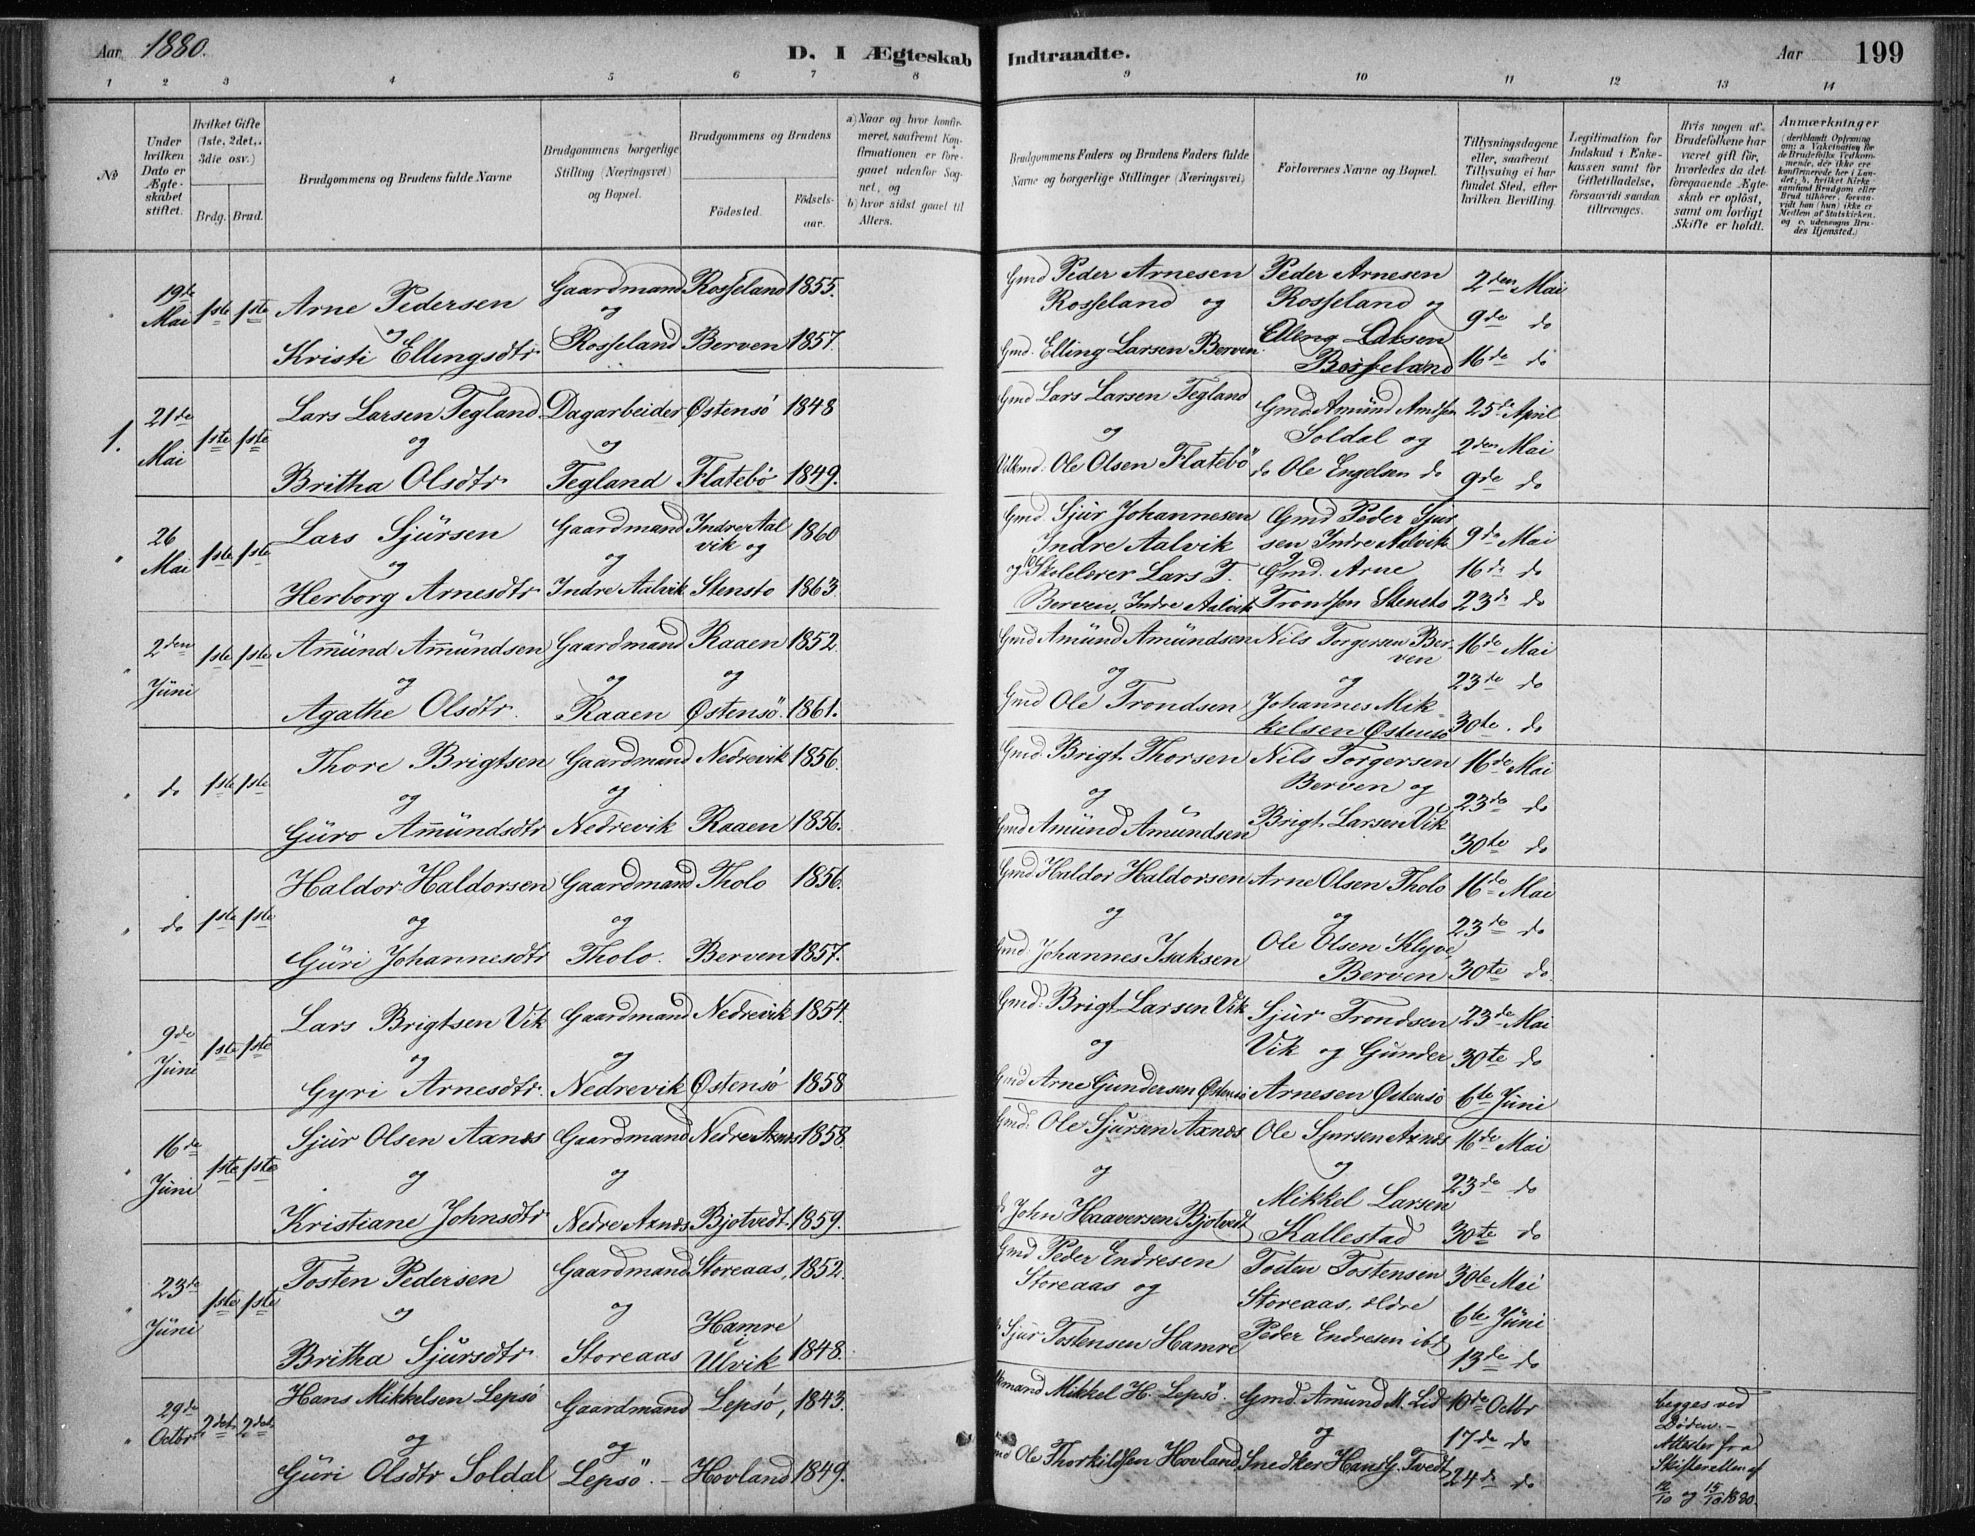 Aar 1880.
D. I Ægteskab Indtraadte.
Aar 199
1 2 3 4 5 6 7 8 9 10 11 12 13 14
No
Under hvilken Dato er Ægteskabet stiftet.
Hvilket Gifte (1ste, 2det, 3die osv.)
Brdg. Brud.
Brudgommens og Brudens fulde Navne
Brudgommens borgerlige Stilling (Næringsvei) og Bopæl.
Brudgommens og Brudens
Fødested.
Fødselsaar.
a) Naar og hvor konfirmeret, saafremt Konfirmationen er foregaaet udenfor Sognet, og
b) hvor sidst gaaet til Alters.
Brudgommens Faders og Brudens Faders fulde Navne og borgerlige Stillinger (Næringsvei)
Forlovernes Navne og Bopæl.
Tillysningsdagene eller, saafremt Tillysning ei har fundet Sted, efter hvilken Bevilling.
Legitimation for Indskud i Enkekassen samt for Giftetilladelse, forsaavidt saadan tiltrænges.
Hvis nogen af Brudefolkene har været gift før, hvorledes da det foregaaende Ægteskab er opløst, samt om lovligt Skifte er holdt.
Anmærkninger
19de Mai 1ste 1ste
Arne Pedersen Gaardmand Rosseland 1855.
og og
Kristi Ellingsdtr Rosseland Berven 1857.
Gmd Peder Arnesen Peder Arnesen 2den Mai
Rosseland og Rosseland og 9de do
Gmd. Elling Larsen Berven. Elling Larsen Rosseland 16de do
1. 21de Mai 1ste 1ste
Lars Larsen Tegland Dagarbeider Østensö 1848
og og
Britha Olsdtr Tegland Flatebö 1849.
Gmd Lars Larsen Tegland Gmd. Amünd Amdsen 25de April
og Soldal og 2den Mai
Ole Olsen Flatebö do Ole Engelsen do 9de do
26 Mai 1ste 1ste
Lars Sjürsen Gaardmand Indre Aalvik og 1860
og og
Herborg Arnesdtr Indre Aalvik Stensto 1863
Gmd. Sjur Johannesen Gmd Peder Sjur
Indre Aalvik sen Indre Aalvik 9de Mai
og Skolelærer Lars T. Gmd. Arne 16de do
Berven, Indre Aalvik Trondsen Stensto 23de do
2den Jüni 1ste 1ste
Amünd Amündsen Gaardmand Raaen 1852.
og og og
Agathe Olsdtr. Raaen Østensö. 1861.
Gmd Amünd Amündsen Nils Torgersen Berven 16de Mai
og og 23de do
Gmd Ole Trondsen Johannes Mikkelsen Østensö 30te. do
do 1ste 1ste
Thore Brigtsen Gaardmand Nedrevik 1856.
og og
Güro Amündsdtr Nedrevik Raaen 1856.
Gmd. Brigt Thorsen Nils Torgersen 16de Mai
og Berven og 23de do
Gmd Amünd Amündsen Brigt. Larsen Vik 30te do
do 1ste 1ste
Haldor Haldorsen Gaardmand Tholo 1856.
og og
Güri Johannesdtr Tholo. Berven 1857.
Gmd Haldor Haldorsen Arne Olsen Tholo 16de Mai
og og 23de do
Gmd. Johannes Isaksen Ole Olsen Klyve Berven 30te do
9de Jüni 1ste 1ste
Lars Brigtsen Vik Gaardmand Nedrevik 1854.
og og
Gyri Arnesdtr. Nedrevik Østensö 1858
Gmd. Brigt Larsen Vik Sjur Trondsen 23de Mai
og Vik og Gunder 30te do
Gmd Arne Gundersen Østensö Arnesen Østensö 6te Jüni
16de Jüni 1ste 1ste
Sjur Olsen Axnæs Gaardmand Nedre Axnæs 1858.
og og
Kristiane Johnsdtr Nedre Axnæs Bjotvedt. 1859.
Gmd. Ole Sjursen Axnæs Ole Sjursen Axnæs 16de Mai
og og 23de do
do John Haaversen Bjotvedt Mikkel Larsen Kallestad 30te do
23de Jüni 1ste 1ste
Tosten Pedersen Gaardmand Storeaas, 1852.
og og
Britha Sjursdtr. Storeaas Hamre i Ulvik 1848.
Gmd Peder Endresen Tosten Tostensen 30te Mai
Storeaas og Storeaas, ældre 6te Jüni
Sjur Tostensen Hamre Peder Endresen ibd 13de do
29de Octbr 2det 2det
Hans Mikkelsen Lepsö Gaardmand Lepsö, 1843.
og og
Güri Olsdtr Soldal Lepsö. Hovland 1849.
Mikkel H. Lepsö. Gmd. Amund M. Lid 10de Octbr
og 17de do
Ole Thorkildsen Hovland Snedker Hans G. Tvedt 24de do
begges ved
Døden.
Attester fra
Skifteretten af
12/10 og 15/10 1880.